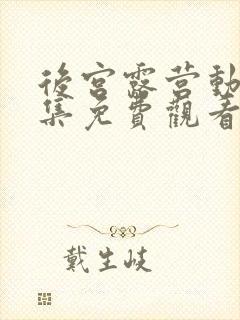 後宮露营動
集免費觀看
戴生岐